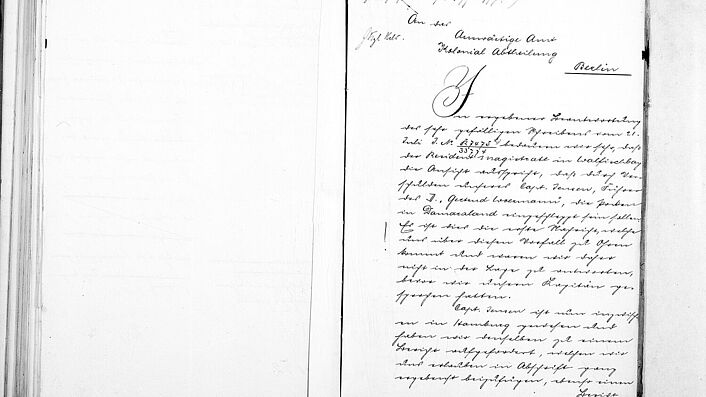 An das
Auswärtige Amt
Kolonial Abtheilung
Berlin
In ergebener Beantwortung
des sehr gefälligen Schreibens vom 21.
Juli J. N. K7075
33774 bedauern wir sehr, daß
der Resident Magistratt in Walfischbay
die Ansicht ausspricht, daß durch Ver-
schulden unseres Capt. Jensen, Führer
des D. „Gertrud Woermann", die Pocken
in Damaraland eingeschleppt sein sollen.
Es ist dies die erste Nachricht, welche
uns über diesen Vorfall zu Ohren
kommt und waren wir daher
nicht in der Lage zu antworten,
bevor wir unsern Kapitän ge-
sprochen hatten.
Capt. Jensen ist nun inzwisch-
en in Hamburg gewesen und
haben wir denselben zu einem
Bericht aufgefordert, welchen wir
uns erlauben in Abschrift ganz
ergebenst beizufügen, ebenso einen